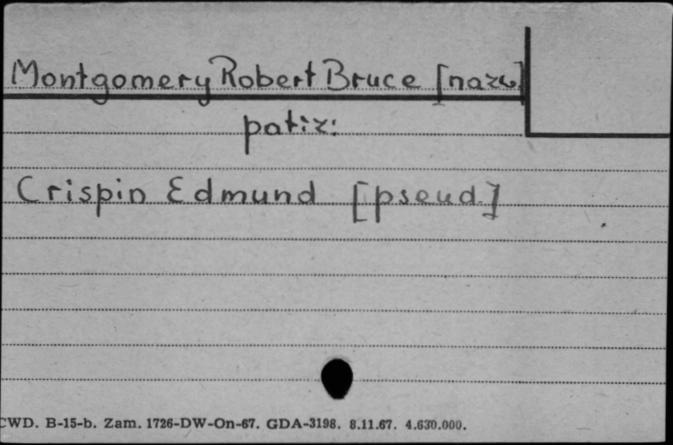 Montgomery Robert Bruce [nazw]
patrz:
Crispin Edmund [pseud.]
CWD. B-15-b. Zam. 1726-DW-On-67. GDA-3198. 8.11.67. 4.630.000.